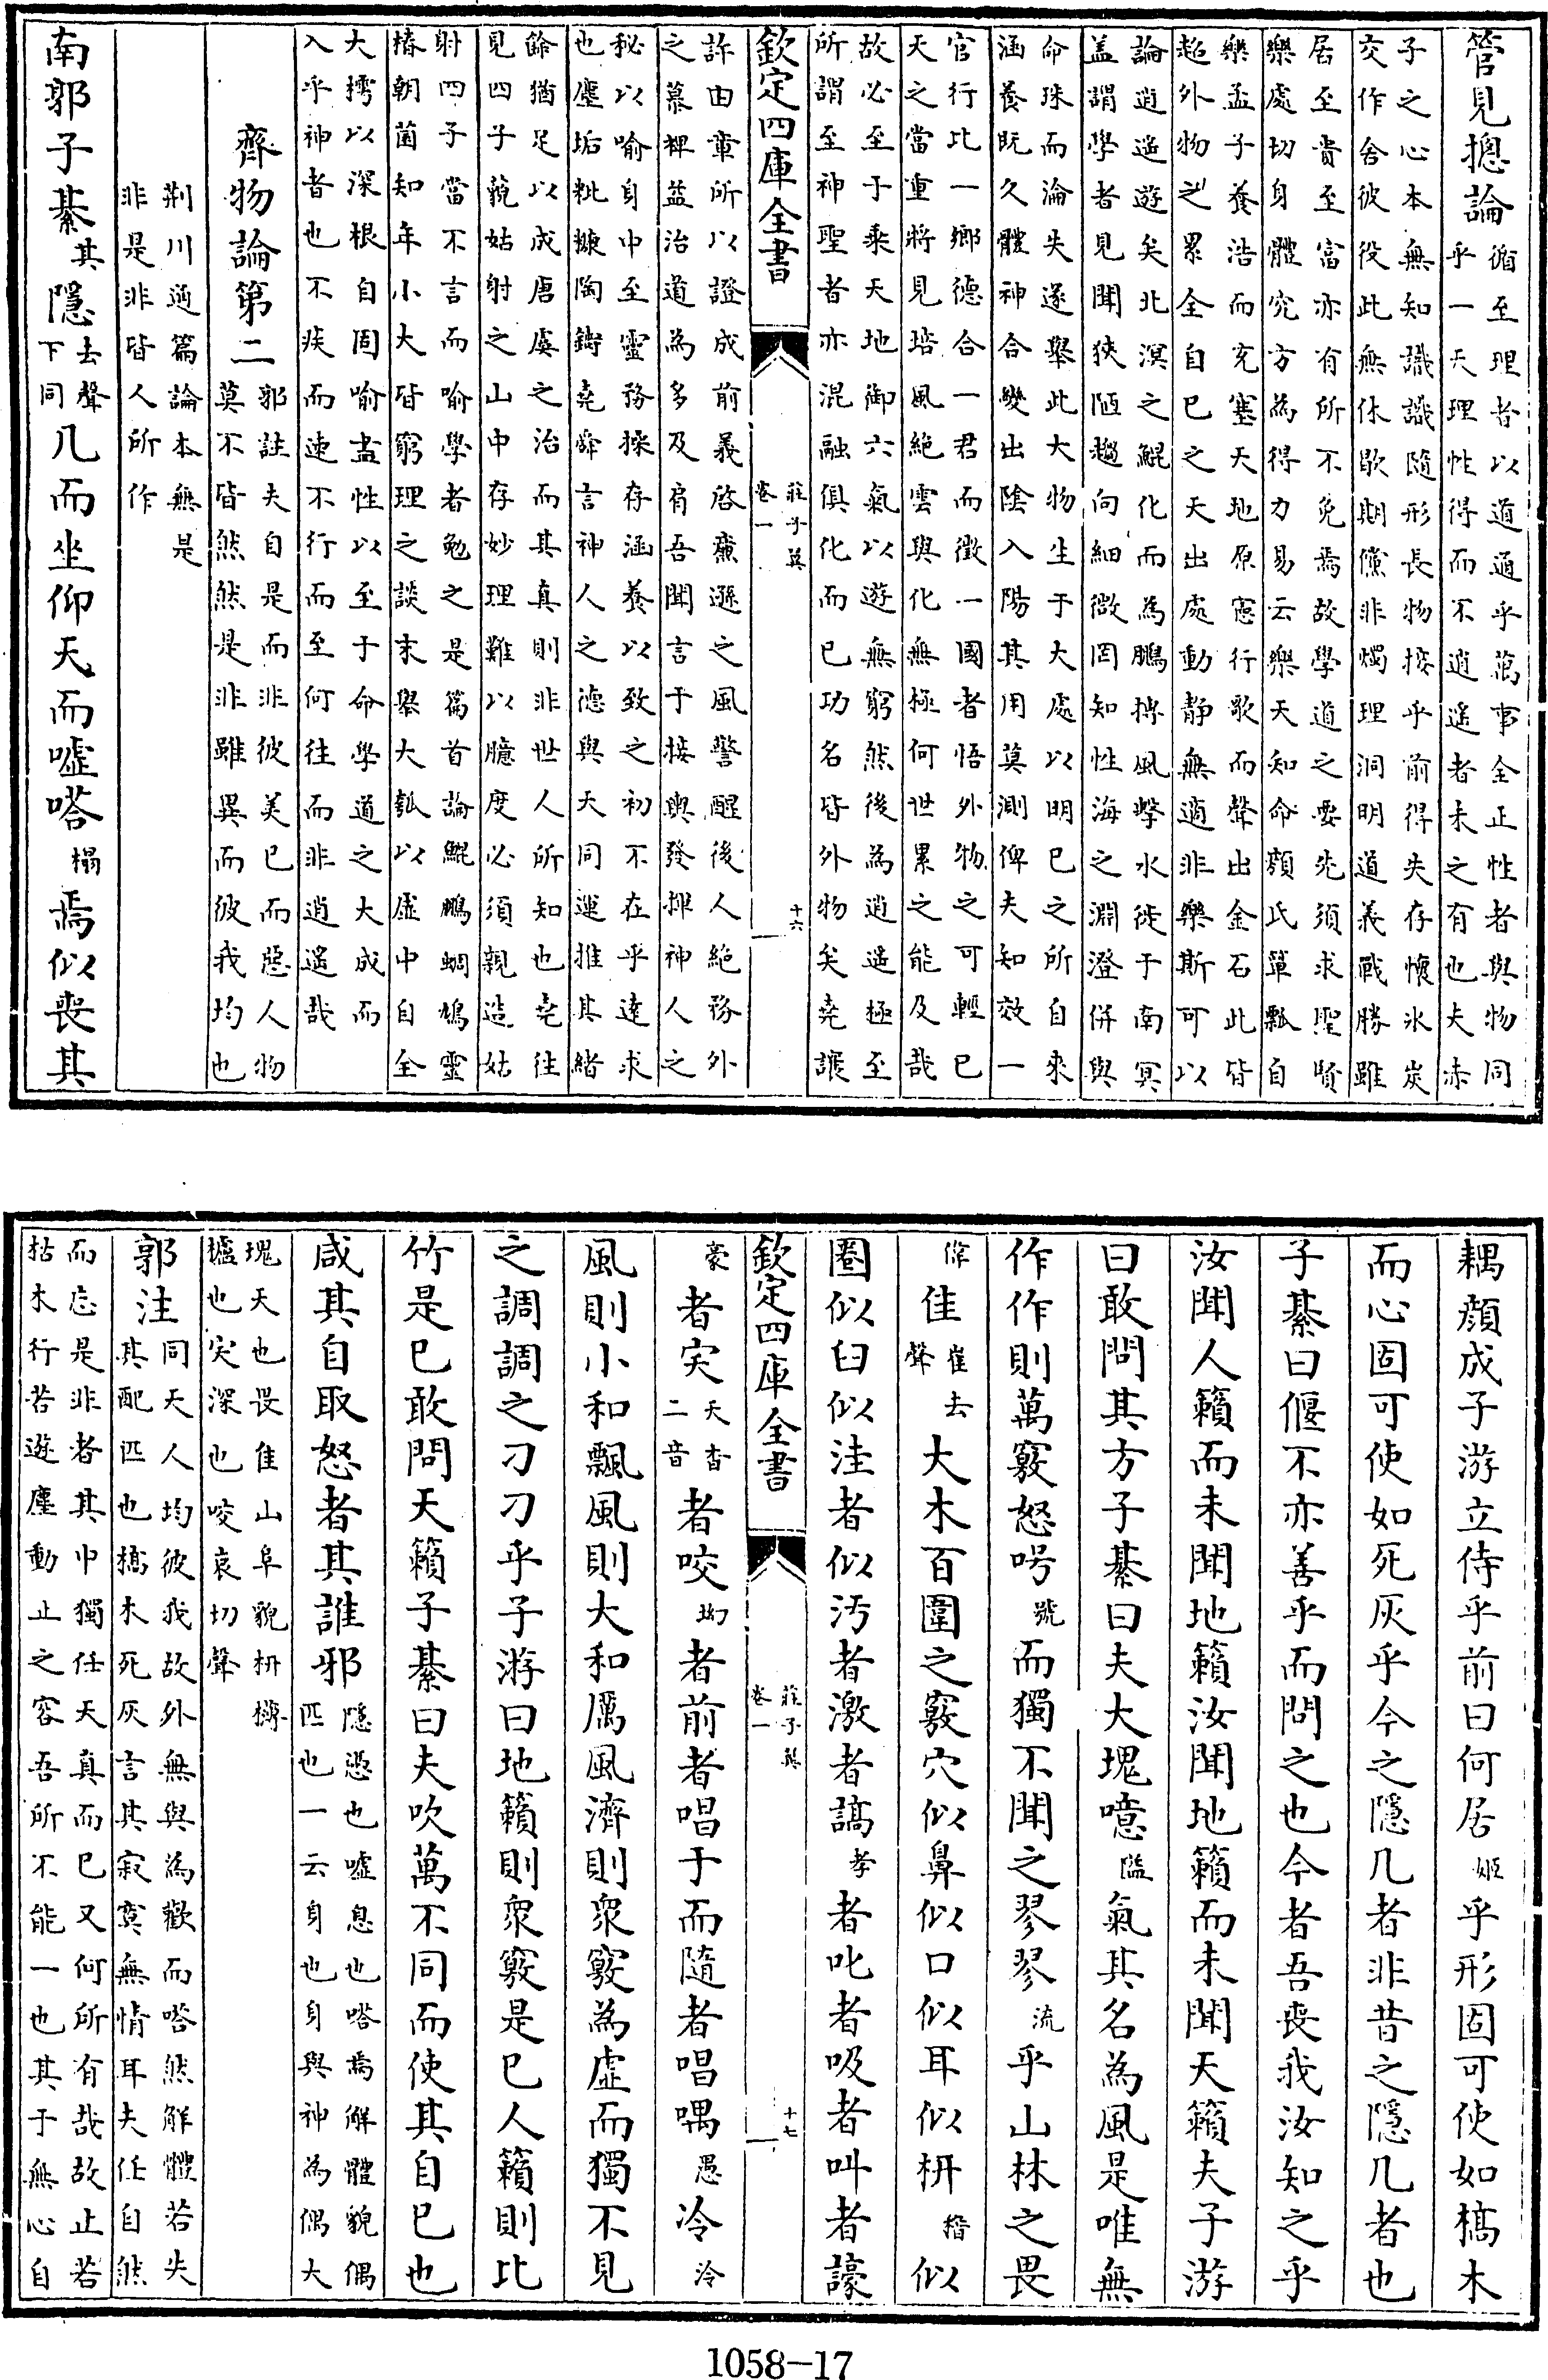 管見揔論循至理者以道通乎萬事全正性者與物同
乎一天理性得而不逍遥者未之有也夫赤
子之心本無知識識隨形長物接乎前得失存懷氷炭
交作舍彼役此無休歇期儻非燭理洞明道義戰勝雖
居至貴至富亦有所不免焉故學道之要先須求聖賢
樂處切身體究方為得力易云樂天知命顔氏簞瓢自
樂孟子養浩而充塞天地原憲行歌而聲出金石此皆
超外物之累全自已之天出處動静無適非樂斯可以
論逍遥遊矣北溟之鯤化而為鵬搏風擊水徙于南冥
盖謂學者見聞狹陋趨向細微罔知性海之淵澄併與
命珠而淪失遂舉此大物生于大處以明已之所自來
涵養既久體神合變出陰入陽其用莫測俾夫知效一
官行比一鄉德合一君而徵一國者悟外物之可輕已
天之當重將見培風絶雲與化無極何世累之能及哉
故必至于乘天地御六氣以遊無窮然後為逍遥極至
所謂至神聖者亦混融俱化而已功名皆外物矣堯讓
欽定四庫全書
莊子翼
卷一
十六
許由章所以證成前義啓亷遜之風警醒後人絶務外
之慕裨益治道為多及肩吾聞言于接輿發揮神人之
秘以喻身中至靈務操存涵養以致之初不在乎逺求
也塵垢粃糠陶鑄堯舜言神人之德與天同運推其緒
餘猶足以成唐虞之治而其真則非世人所知也堯往
見四子藐姑射之山中存妙理難以臆度必須親造姑
射四子當不言而喻學者勉之是篇首論鯤鵬蜩鳩靈
椿朝菌知年小大皆窮理之談末舉大瓠以虚中自全
大樗以深根自固喻盡性以至于命學道之大成而
入乎神者也不疾而速不行而至何往而非逍遥哉
齊物論第二郭註夫自是而非彼美已而惡人物
莫不皆然然是非雖異而彼我均也
荆川通篇論本無是
非是非皆人所作
南郭子綦其隱去聲下同几而坐仰天而嘘嗒榻焉似喪其
耦顔成子游立侍乎前曰何居姬乎形固可使如槁木
而心固可使如死灰乎今之隱几者非昔之隱几者也
子綦曰偃不亦善乎而問之也今者吾喪我汝知之乎
汝聞人籟而未聞地籟汝聞地籟而未聞天籟夫子游
曰敢問其方子綦曰夫大塊噫隘氣其名為風是唯無
作作則萬竅怒呺號而獨不聞之翏翏流乎山林之畏
偎佳崔去聲大木百圍之竅穴似鼻似口似耳似枅楷似
圈似臼似洼者似汚者激者謞孝者叱者吸者叫者譹
欽定四庫全書
莊子翼
卷一
十七
豪者宎天杳二音者咬坳者前者唱于而隨者唱喁愚冷泠
風則小和飄風則大和厲風濟則衆竅為虚而獨不見
之調調之刁刁乎子游曰地籟則衆竅是已人籟則比
竹是已敢問天籟子綦曰夫吹萬不同而使其自已也
咸其自取怒者其誰邪隱憑也嘘息也嗒焉解體貌偶
匹也一云身也身與神為偶大
塊天也畏隹山阜貌枅欂
櫨也宎深也咬哀切聲
郭注同天人均彼我故外無與為歡而嗒然解體若失
其配匹也槁木死灰言其寂寞無情耳夫任自然
而忘是非者其中獨任天真而已又何所有哉故止若
枯木行若遊塵動止之容吾所不能一也其于無心自
1058-17